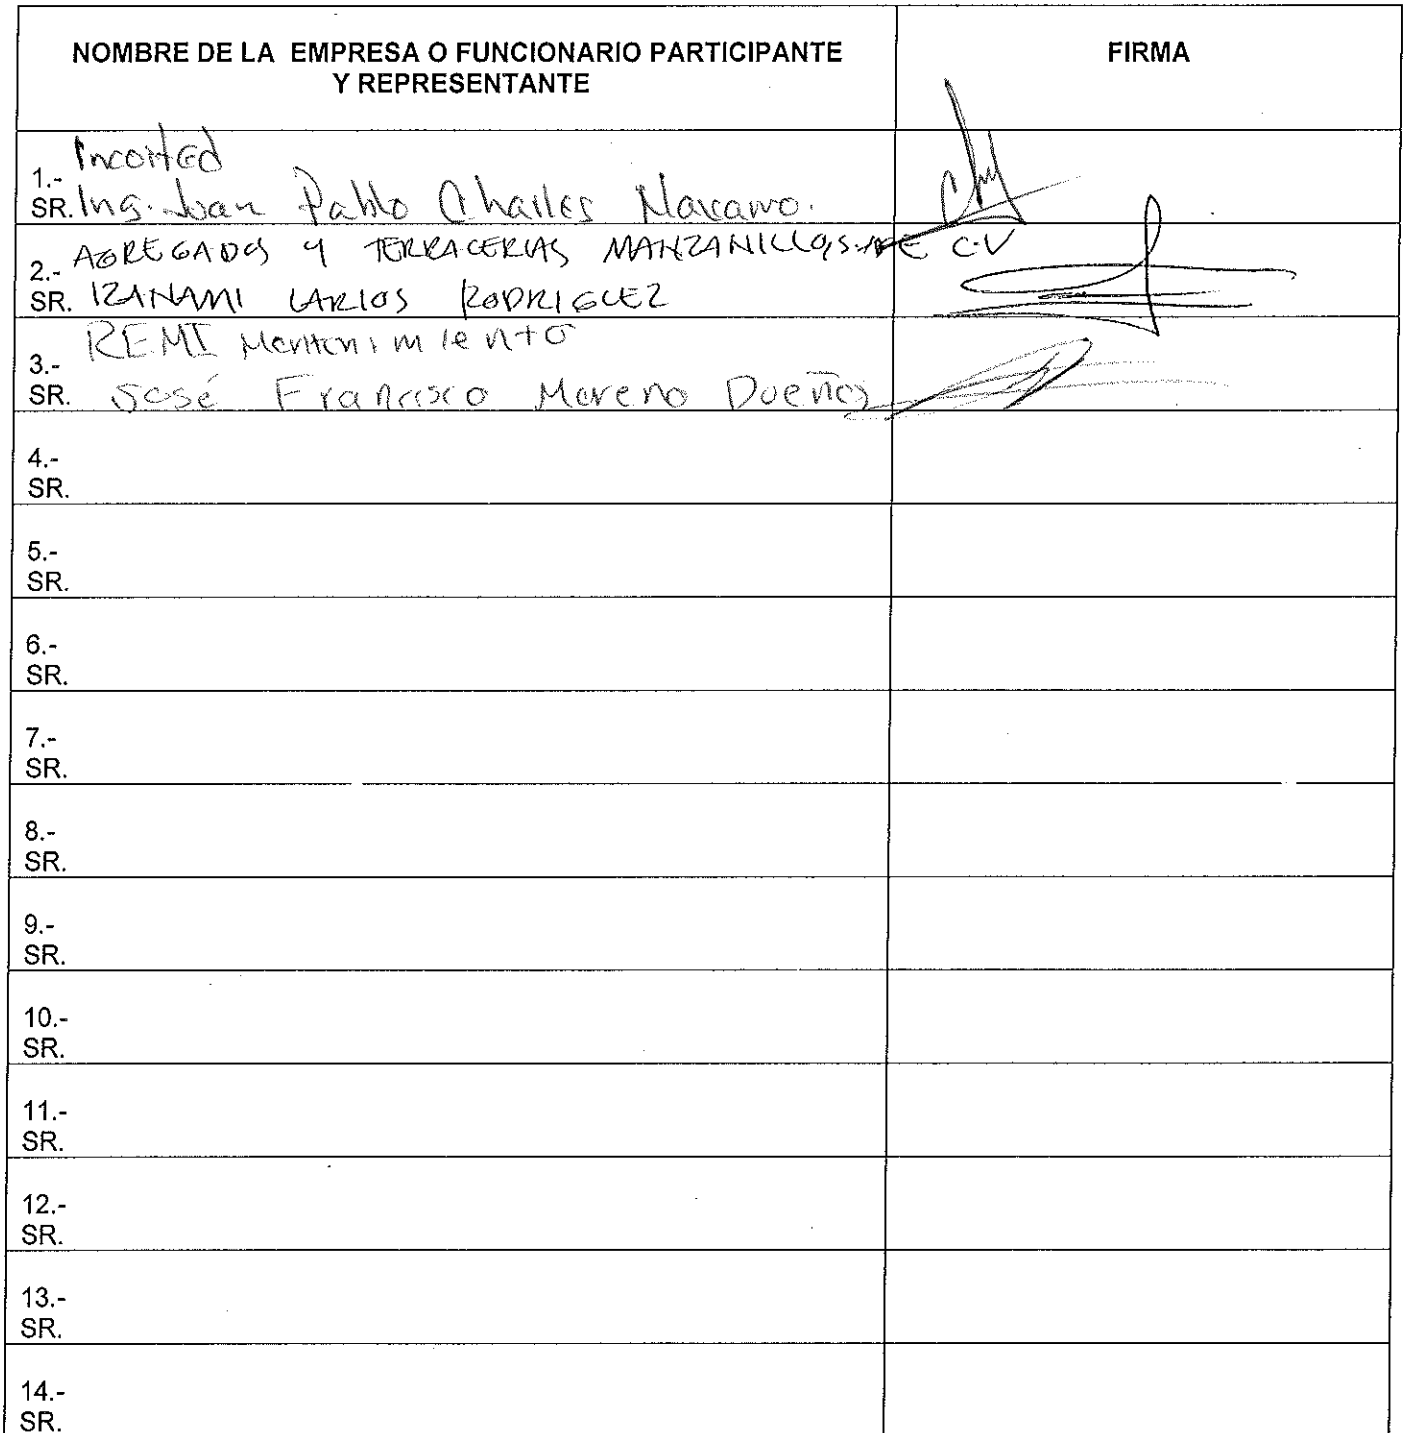 NOMBRE DE LA EMPRESA O FUNCIONARIO PARTICIPANTE
Y REPRESENTANTE
FIRMA
1.-
SR. Ing. Juan Pablo Charles Navarro.
2.- AGREGADOS Y TERRACERIAS MANZANILLO, S. DE C.V
SR. IZANAMI LARIOS RODRIGUEZ
3.- REMI Mantenimiento
SR. José Francisco Moreno Dueñas
4.-
SR.
5.-
SR.
6.-
SR.
7.-
SR.
8.-
SR.
9.-
SR.
10.-
SR.
11.-
SR.
12.-
SR.
13.-
SR.
14.-
SR.